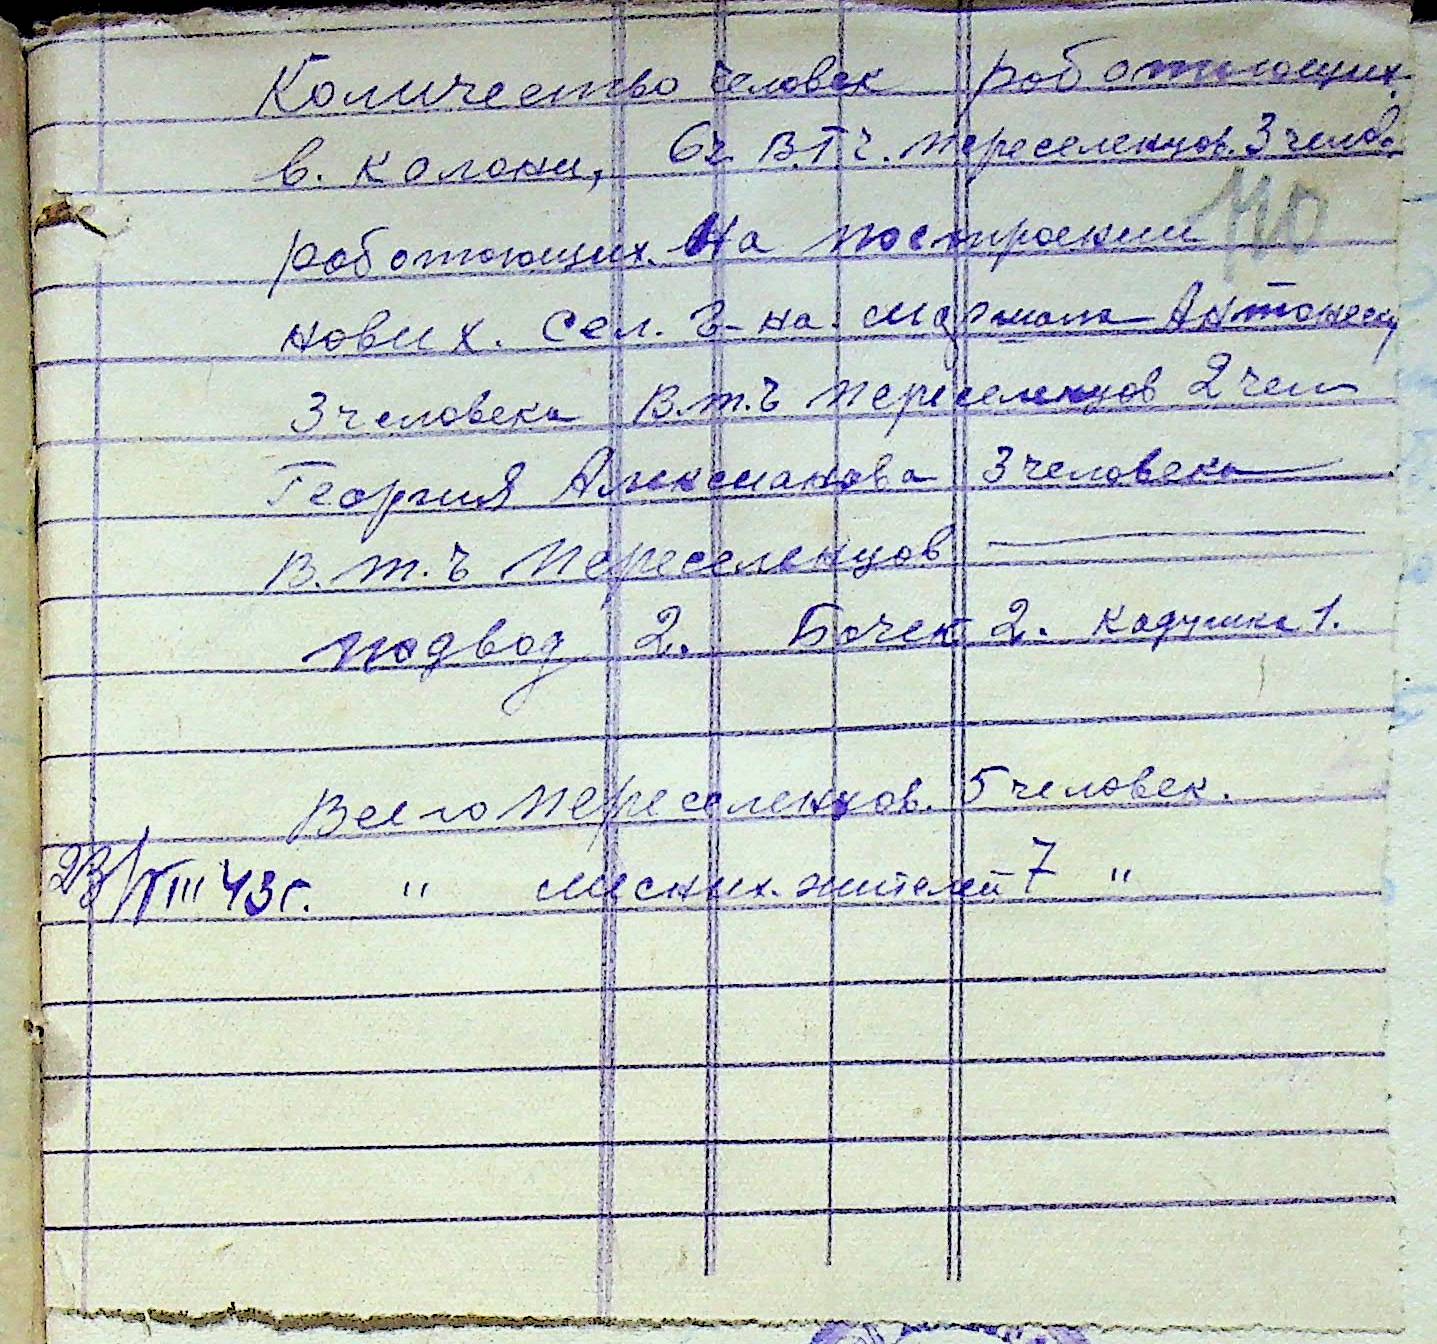 Количество человек роботоющих
в. колони, 6ч. В.Т.Ч. переселенцов. 3 челов.
110
роботоющих. На построении
нових. сел. Г-на. маршала Антонеску
3 человека В.т.ч переселенцов 2 чел
Георгия Алексианова 3 человека
В.т.ч переселенцов
подвод 2. Бочек 2. кадушка 1.
Всего переселенцов. 5 человек.
23/VIII 43г. " месних. жителей 7 "